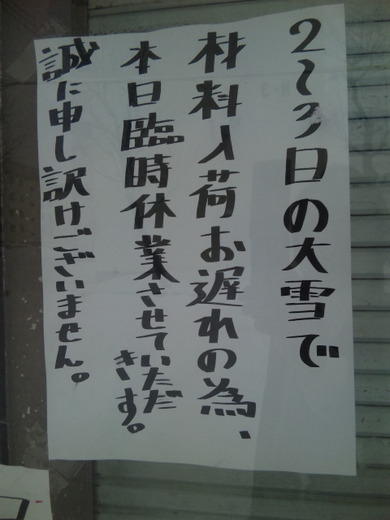 2〜3日の大雪で
材料入荷お遅れの為、
本日臨時休業させていただ
きす。
誠に申し訳けございません。